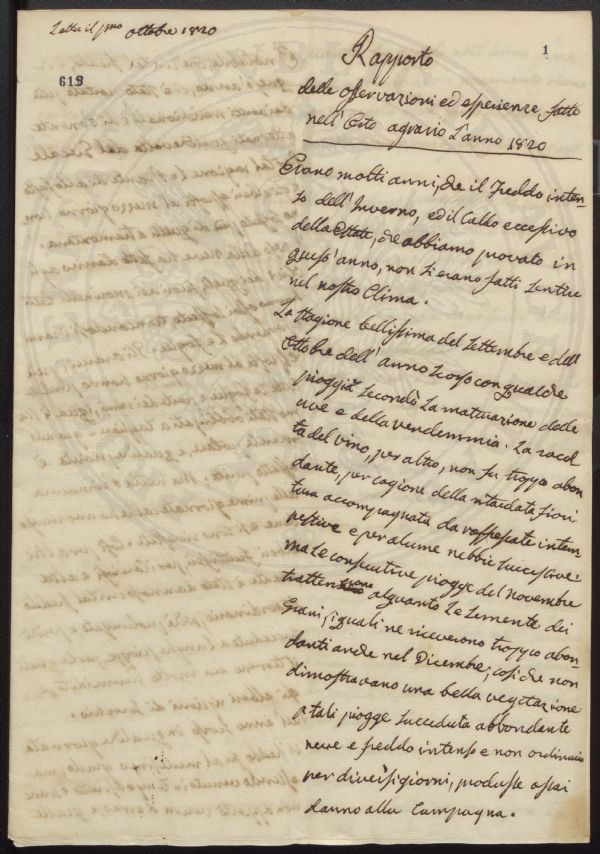 Letta il p.mo ottobre 1820
1
613
Rapporto
delle osservazioni ed esperienze fatte
nell'Orto agrario l'anno 1820
Erano molti anni, che il Freddo inten-
so dell'Inverno, ed il Caldo eccessivo
della Estate, che abbiamo provato in
quest'anno, non si erano fatti sentire
nel nostro Clima.
La stagione bellissima del Settembre e dell'
Ottobre dell'anno scorso con qualche
pioggia secondò la maturazione delle
uve e della vendemmia. La racol
ta del vino, per altro, non fu troppo abon
dante, per cagione della ritardata fiori
tura accompagnata da rasfreddate intem
pestive e per alcune nebbie successive:
ma le consecutive piogge del Novembre
trattennero alquanto le semente dei
Grani, i quali ne riceverono troppo abon-
danti anche nel Dicembre; così che non
dimostravano una bella vegetazione
a tali piogge succeduta abbondante
neve e freddo intenso e non ordinario
per diversi giorni, produsse assai
danno alla Campagna.